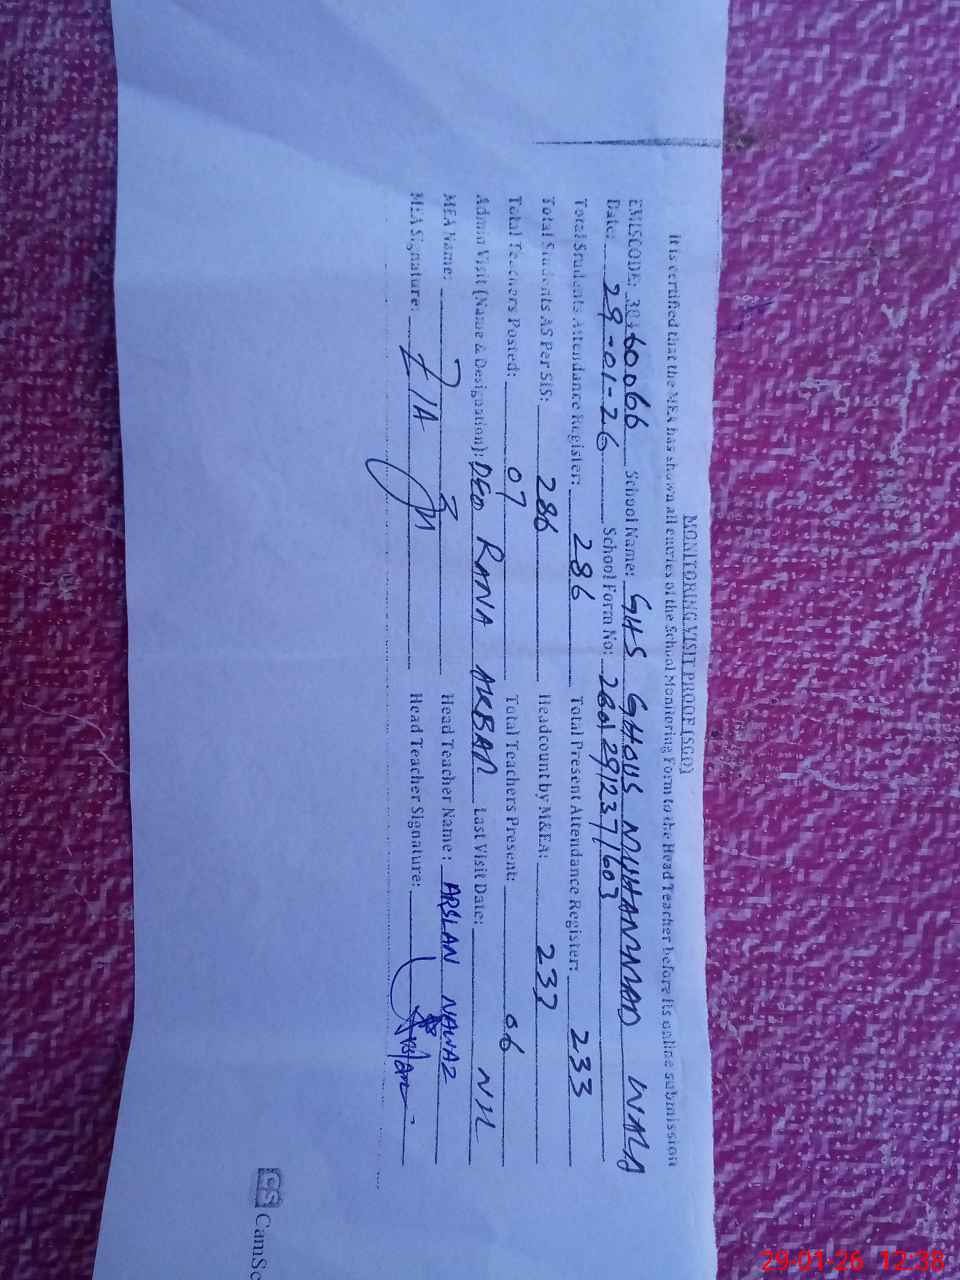 MONITORING VISIT PROOF (SGO)
It is certified that the MEA has shown all entries of the School Monitoring Form to the Head Teacher before its online submission
EMISCODE: 38460066 School Name: GHS GHOUS MUHAMMAD WALA
Date: 29-01-26 School Form No: 26012912371603
Total Students Attendance Register: 286 Total Present Attendance Register: 233
Total Students AS Per SIS: 286 Headcount by M&EA: 232
Total Teachers Posted: 07 Total Teachers Present: 06
Admin Visit (Name & Designation): DEO RANA AKBAR Last Visit Date: NIL
MEA Name: Head Teacher Name: ARSLAN NAWAZ
MEA Signature: ZIA Head Teacher Signature: Arslan
CS CamSc
29-01-26 12:38